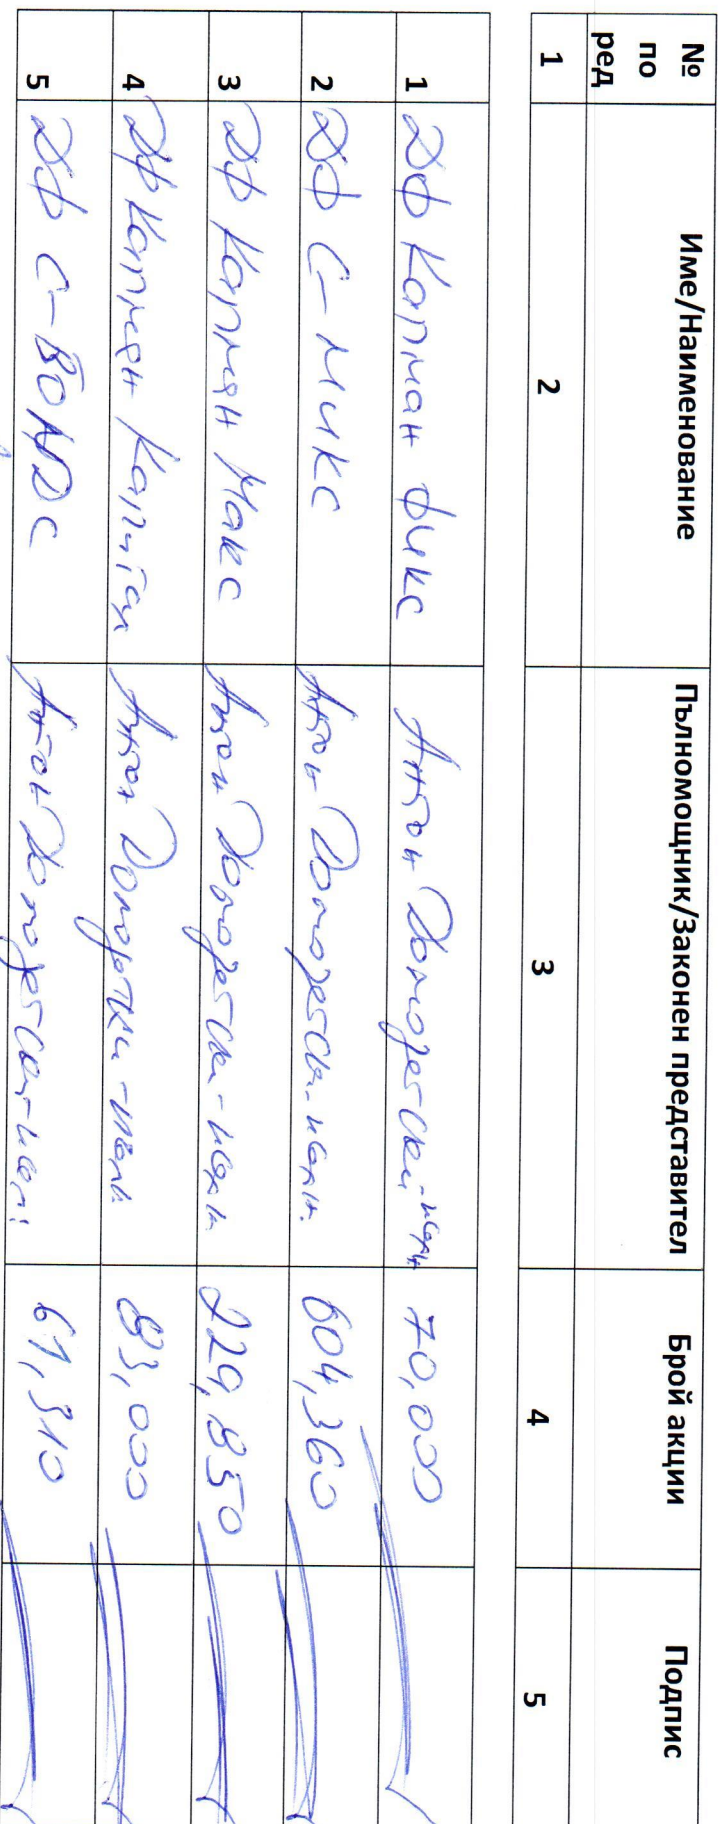 № по ред Име/Наименование Пълномощник/Законен представител Брой акции Подпис
1 2 3 4 5
1 ДФ Капман Фикс Антон Домозетски 70,000
2 ДФ С-Микс Антон Домозетски 604,360
3 ДФ Капман Макс Антон Домозетски 229,850
4 ДФ Капман Капитал Антон Домозетски 83,000
5 ДФ С-БОНДС Антон Домозетски 61,310